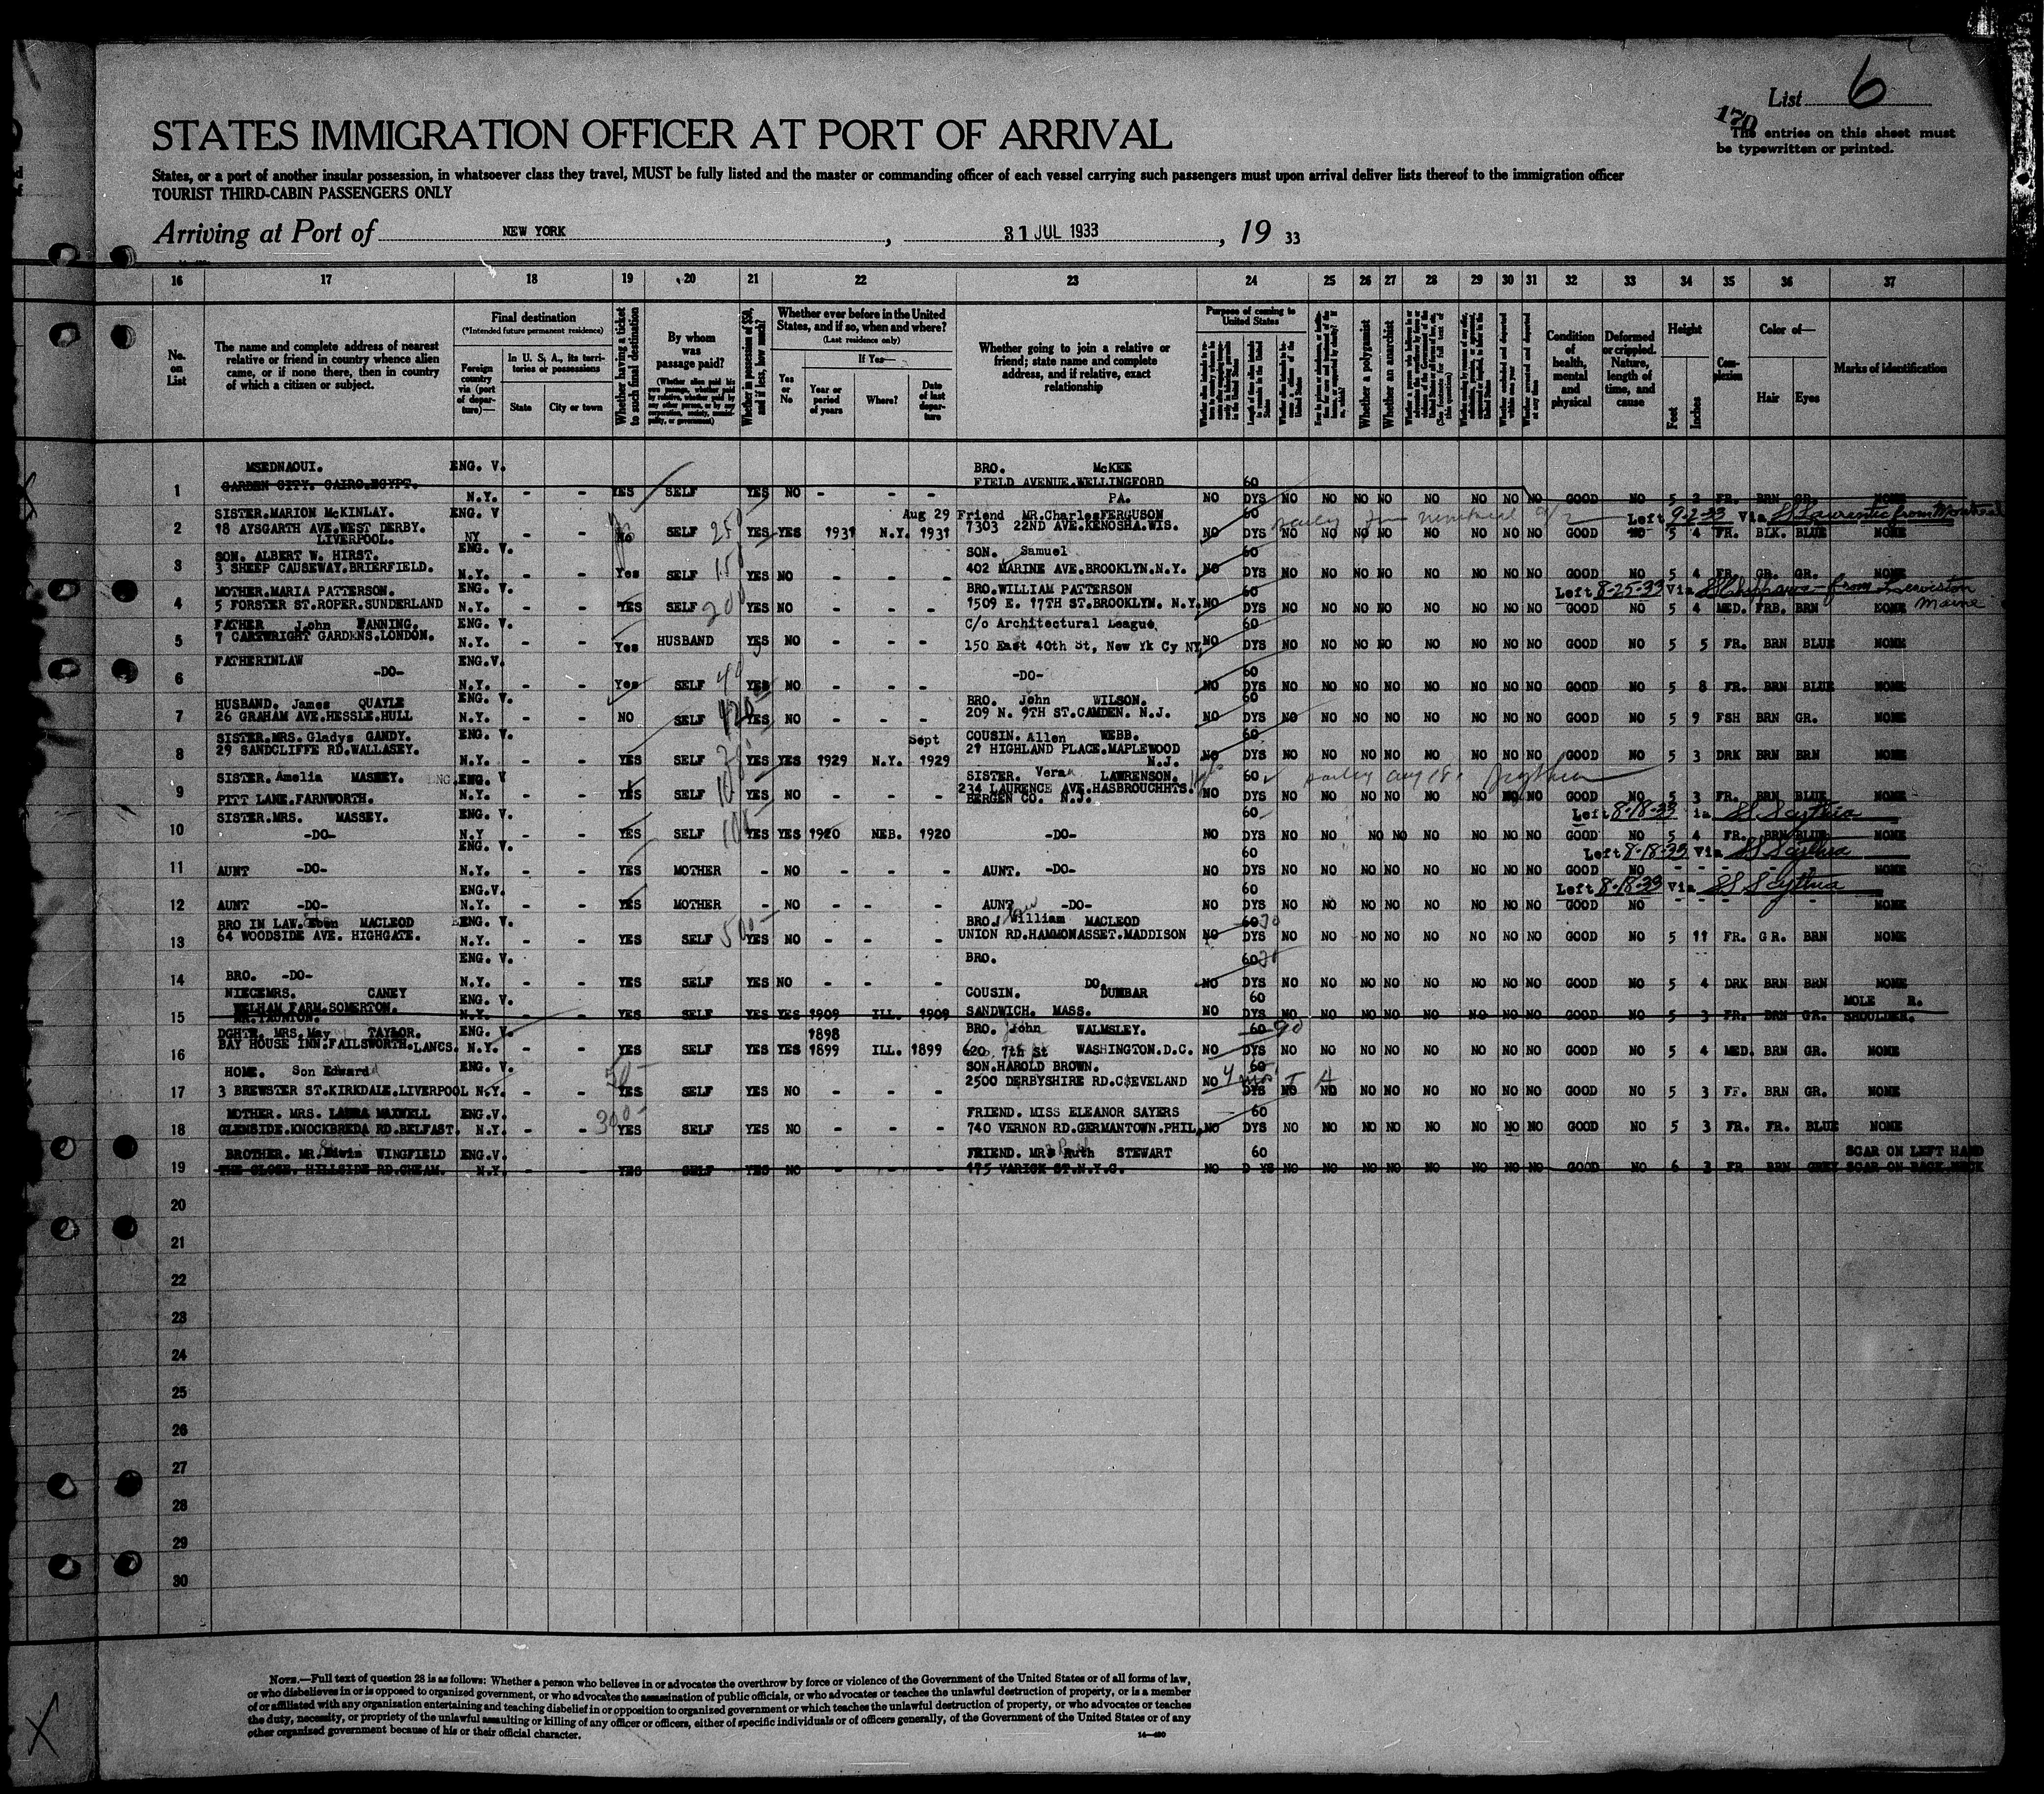 List 6
170
The entries on this sheet must
be typewritten or printed.
STATES IMMIGRATION OFFICER AT PORT OF ARRIVAL
States, or a port of another insular possession, in whatsoever class they travel, MUST be fully listed and the master or commanding officer of each vessel carrying such passengers must upon arrival deliver lists thereof to the immigration officer
TOURIST THIRD-CABIN PASSENGERS ONLY
Arriving at Port of NEW YORK, 31 JUL 1933, 19 33
16 17 18 19 20 21 22 23 24 25 26 27 28 29 30 31 32 33 34 35 36 37
No. on List
The name and complete address of nearest relative or friend in country whence alien came, or if none there, then in country of which a citizen or subject.
Final destination
(*Intended future permanent residence)
Foreign country via (port of departure)—
In U. S. A., its territories or possessions
State
City or town
Whether having a ticket to such final destination
By whom was passage paid?
(Whether alien paid his own passage, whether paid by relative, whether paid by any other person, or by any corporation, society, municipality, or government)
Whether in possession of $50, and if less, how much?
Whether ever before in the United States, and if so, when and where?
(Last residence only)
Yes or No
If Yes—
Year or period of years
Where?
Date of last departure
Whether going to join a relative or friend; state name and complete address, and if relative, exact relationship
Purpose of coming to United States
Whether a polygamist
Whether an anarchist
Condition of health, mental and physical
Deformed or crippled. Nature, length of time, and cause
Height
Feet
Inches
Complexion
Color of—
Hair
Eyes
Marks of identification
MSEDNAOUI. ENG. V. BRO. McKEE
1 GARDEN CITY. CAIRO.EGYPT. FIELD AVENUE.WELLINGFORD 60
N.Y. - - YES SELF YES NO - - - PA. NO DYS NO NO NO NO NO NO NO NO GOOD NO 5 2 FR. BRN GR. NONE
SISTER.MARION McKINLAY. ENG. V Aug 29 Friend MR.Charles FERGUSON 60 Left 9-2-33 Via SS Laurentic from Montreal
2 18 AYSGARTH AVE.WEST DERBY. 7303 22ND AVE.KENOSHA.WIS.
LIVERPOOL. NY - - No SELF 250 YES YES 1931 N.Y. 1931 NO DYS NO NO NO NO NO NO NO NO GOOD NO 5 4 FR. BLK. BLUE NONE
SON. ALBERT W. HIRST. ENG. V. SON. Samuel 60
3 3 SHEEP CAUSEWAY.BRIERFIELD. N.Y. - - Yes SELF 150 YES NO - - - 402 MARINE AVE.BROOKLYN.N.Y. NO DYS NO NO NO NO NO NO NO NO GOOD NO 5 4 FR. GR. GR. NONE
MOTHER.MARIA PATTERSON. ENG. V. BRO.WILLIAM PATTERSON 60 Left 8-25-33 Via from Lewiston Maine
4 5 FORSTER ST.ROPER.SUNDERLAND N.Y. - - YES SELF 200 YES NO - - - 1509 E. 17TH ST.BROOKLYN. N.Y. NO DYS NO NO NO NO NO NO NO NO GOOD NO 5 4 MED. FRB. BRN NONE
FATHER John FANNING. ENG. V. C/o Architectural League, 60
5 7 CARTWRIGHT GARDENS.LONDON. N.Y. - - Yes HUSBAND YES NO - - - 150 East 40th St, New Yk Cy NY NO DYS NO NO NO NO NO NO NO NO GOOD NO 5 5 FR. BRN BLUE NONE
FATHERINLAW ENG.V. 60
6 -DO- N.Y. - - Yes SELF 40 YES NO - - - -DO- NO DYS NO NO NO NO NO NO NO NO GOOD NO 5 8 FR. BRN BLUE NONE
HUSBAND. James QUAYLE ENG. V. BRO. John WILSON. 60
7 26 GRAHAM AVE.HESSLE.HULL N.Y. - - NO SELF 420 YES NO - - - 209 N. 9TH ST.CAMDEN. N.J. NO DYS NO NO NO NO NO NO NO NO GOOD NO 5 9 FSH BRN GR. NONE
SISTER.MRS. Gladys GANDY. ENG. V. Sept COUSIN. Allen WEBB. 60
8 29 SANDCLIFFE RD.WALLASEY. N.Y. - - YES SELF YES YES 1929 N.Y. 1929 21 HIGHLAND PLACE.MAPLEWOOD N.J. NO DYS NO NO NO NO NO NO NO NO GOOD NO 5 3 DRK BRN BRN NONE
SISTER. Amelia MASSEY. ENG. V SISTER. Vera LAWRENSON. 60
9 PITT LANE.FARNWORTH. N.Y. - - YES SELF YES NO - - - 234 LAURENCE AVE.HASBROUCHHTS. BERGEN CO. N.J. NO DYS NO NO NO NO NO NO NO NO GOOD NO 5 3 FR. BRN BLUE NONE
SISTER.MRS. MASSEY. ENG. V. 60 Left 8-18-33 via SS Scythia
10 -DO- N.Y - - YES SELF 100 YES YES 1920 NEB. 1920 -DO- NO DYS NO NO NO NO NO NO NO NO GOOD NO 5 4 FR. BRN BLUE NONE
ENG. V. 60 Left 8-18-33 Via SS Scythia
11 AUNT -DO- N.Y. - - YES MOTHER - NO - - - AUNT. -DO- NO DYS NO NO NO NO NO NO NO NO GOOD NO - - - - - NONE
ENG.V. 60 Left 8-18-33 Via SS Scythia
12 AUNT -DO- N.Y. - - YES MOTHER - NO - - - AUNT -DO- NO DYS NO NO NO NO NO NO NO NO GOOD NO - - - - - NONE
BRO IN LAW. Eben MACLEOD ENG. V. BRO. William MACLEOD 60 30
13 64 WOODSIDE AVE. HIGHGATE. N.Y. - - YES SELF 500 YES NO - - - UNION RD.HAMMONASSET.MADDISON NO DYS NO NO NO NO NO NO NO NO GOOD NO 5 11 FR. GR. BRN NONE
ENG. V. BRO. 60 30
14 BRO. -DO- N.Y. - - YES SELF YES NO - - - DO. NO DYS NO NO NO NO NO NO NO NO GOOD NO 5 4 DRK BRN BRN NONE
NIECEMRS. CANEY ENG. V. COUSIN. DUNBAR 60 MOLE R.
15 WELHAM FARM.SOMERTON. NR.TAUNTON. N.Y. - - YES SELF YES YES 1909 ILL. 1909 SANDWICH. MASS. NO DYS NO NO NO NO NO NO NO NO GOOD NO 5 3 FR. BRN GR. SHOULDER.
DGHTR. MRS. May TAYLOR. ENG. V. 1898 BRO. John WALMSLEY. 60 90
16 BAY HOUSE INN.FAILSWORTH.LANCS. N.Y. - - YES SELF YES YES 1899 ILL. 1899 620, 7th St WASHINGTON.D.C. NO DYS NO NO NO NO NO NO NO NO GOOD NO 5 4 MED. BRN GR. NONE
HOME. Son Edward ENG. V. 50 SON.HAROLD BROWN. 60
17 3 BREWSTER ST.KIRKDALE.LIVERPOOL N.Y. - - YES SELF YES NO - - - 2500 DERBYSHIRE RD.CLEVELAND NO 4 mos DYS NO NO NO NO NO NO NO NO GOOD NO 5 3 FR. BRN GR. NONE
MOTHER. MRS. LAURA MAXWELL ENG.V. 300 FRIEND. MISS ELEANOR SAYERS 60
18 GLENSIDE.KNOCKBREDA RD.BELFAST. N.Y. - - YES SELF YES NO - - - 740 VERNON RD.GERMANTOWN.PHIL. NO DYS NO NO NO NO NO NO NO NO GOOD NO 5 3 FR. FR. BLUE NONE
BROTHER. MR. Edwin WINGFIELD ENG.V. FRIEND. MRS Ruth STEWART 60 SCAR ON LEFT HAND
19 THE CLOSE. HILLSIDE RD.CHEAM. N.Y. - - YES SELF YES NO - - - 175 VARICK ST.N.Y.C. NO DYS NO NO NO NO NO NO NO NO GOOD NO 6 3 FR BRN GREY SCAR ON BACK NECK
20
21
22
23
24
25
26
27
28
29
30
NOTE.—Full text of question 28 is as follows: Whether a person who believes in or advocates the overthrow by force or violence of the Government of the United States or of all forms of law,
or who disbelieves in or is opposed to organized government, or who advocates the assassination of public officials, or who advocates or teaches the unlawful destruction of property, or is a member
of or affiliated with any organization entertaining and teaching disbelief in or opposition to organized government or which teaches the unlawful destruction of property, or who advocates or teaches
the duty, necessity, or propriety of the unlawful assaulting or killing of any officer or officers, either of specific individuals or of officers generally, of the Government of the United States or of any
other organized government because of his or their official character.
14—480